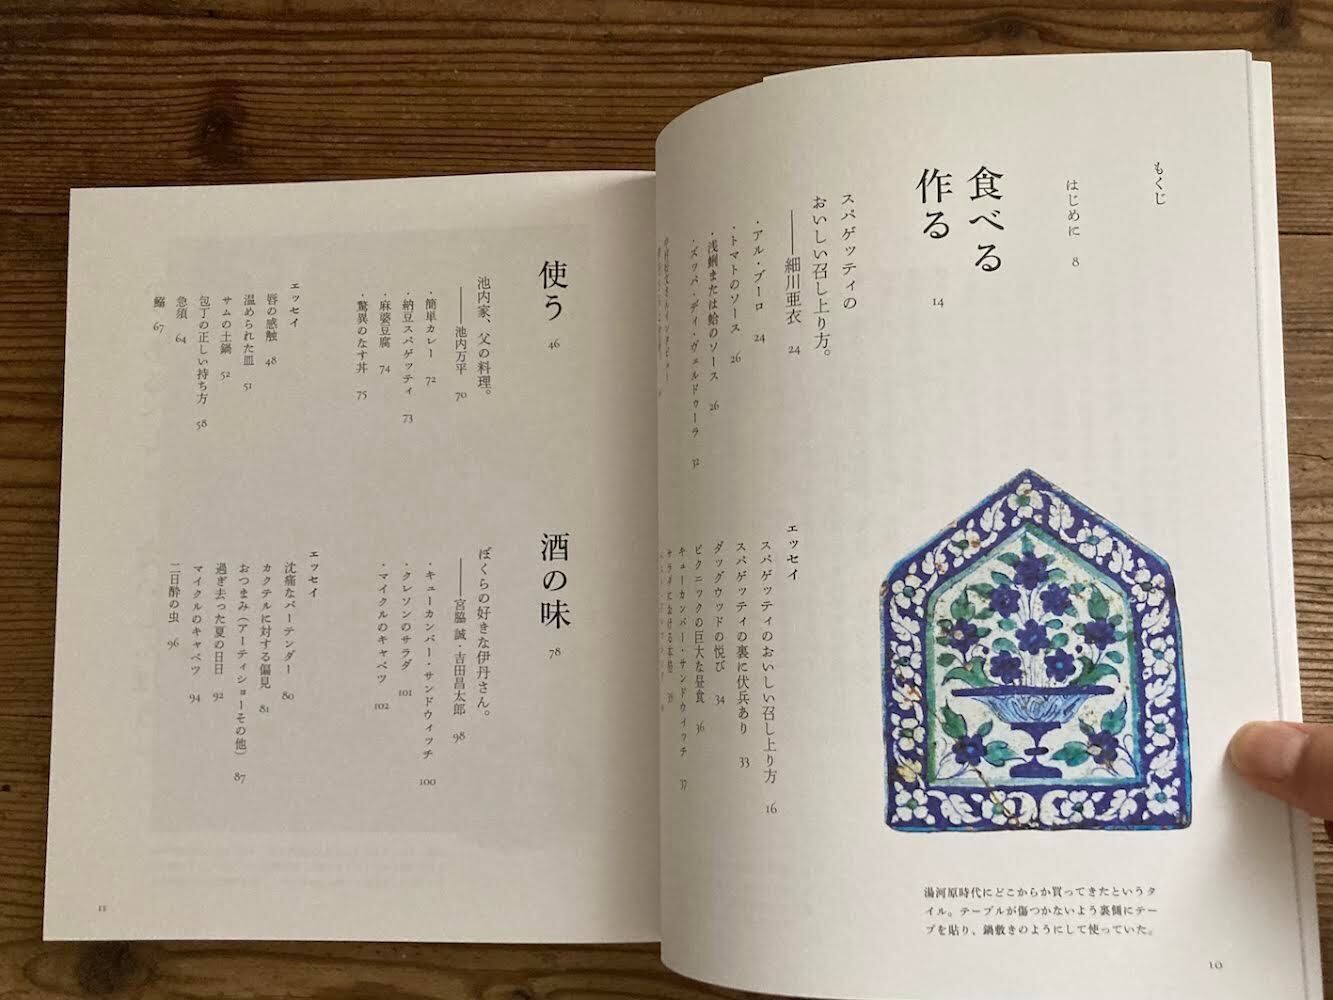 もくじ
はじめに 8
食べる
作る 14
スパゲッティの
おいしい召し上り方。
——細川亜衣 24
・アル・ブーロ 24
・トマトのソース 26
・浅蜊または蛤のソース 26
・ズッパ・ディ・ヴェルドゥーラ 32
エッセイ
スパゲッティのおいしい召し上り方 16
スパゲッティの裏に伏兵あり 33
ダッグウッドの悦び 34
ピクニックの巨大な昼食 36
キューカンバー・サンドウィッチ 37
サラダにおける本格 39
湯河原時代にどこからか買ってきたというタ
イル。テーブルが傷つかないよう裏側にテー
プを貼り、鍋敷きのようにして使っていた。
10
使う 46
池内家、父の料理。
——池内万平 70
・簡単カレー 72
・納豆スパゲッティ 73
・麻婆豆腐 74
・驚異のなす丼 75
エッセイ
唇の感触 48
温められた皿 51
サムの土鍋 52
包丁の正しい持ち方 58
急須 64
鰡 67
酒の味 78
ぼくらの好きな伊丹さん。
——宮脇 誠・吉田昌太郎 98
・キューカンバー・サンドウィッチ 100
・クレソンのサラダ 101
・マイクルのキャベツ 102
エッセイ
沈痛なバーテンダー 80
カクテルに対する偏見 81
おつまみ（アーティショーその他） 87
過ぎ去った夏の日日 92
マイクルのキャベツ 94
二日酔の虫 96
11